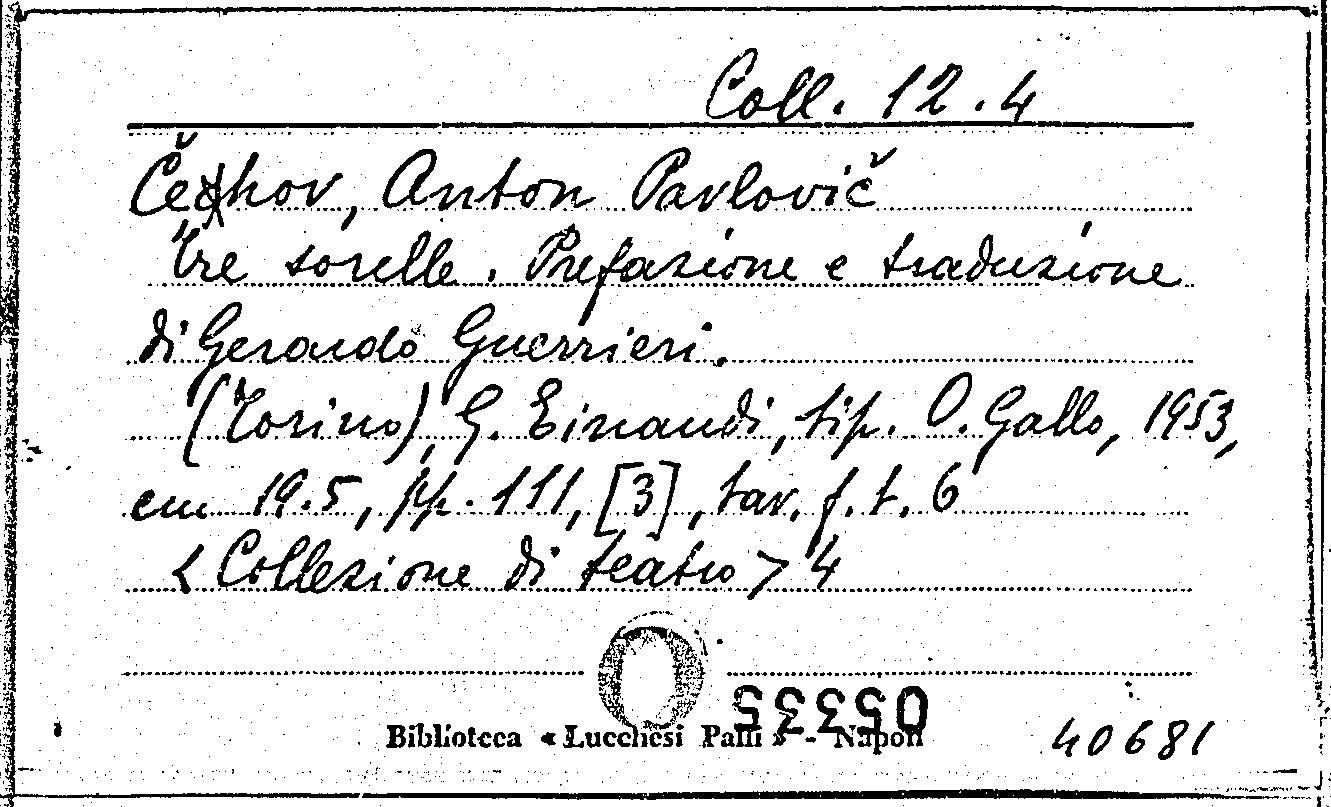 Coll. 12.4
Čehov, Anton Pavlovič
Tre sorelle. Prefazione e traduzione
di Gerardo Guerrieri.
(Torino), G. Einaudi, tip. O. Gallo, 1953,
cm 19.5, pp. 111, [3], tav. f. t. 6
< Collezione di teatro > 4
05335
Biblioteca « Lucchesi Palli » - Napoli
40681